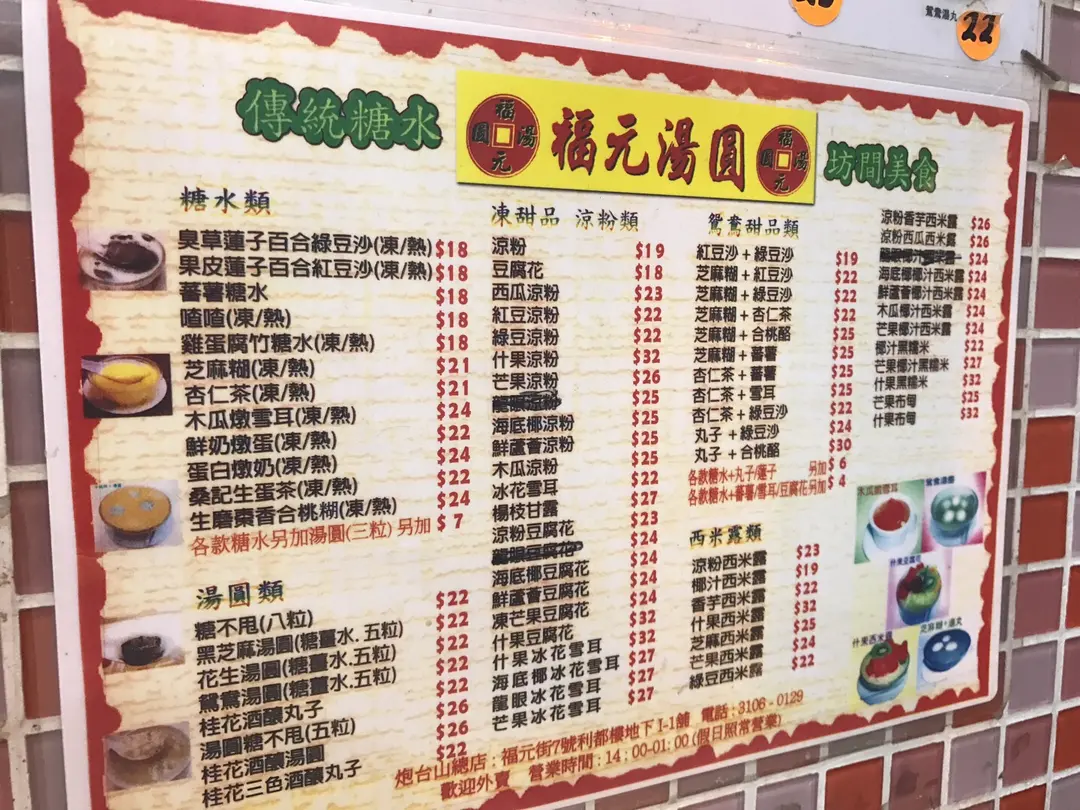 鴛鴦湯丸
22
傳統糖水
福元湯圓
福湯元圓
福湯元圓
坊間美食
糖水類
臭草蓮子百合綠豆沙(凍/熱) $18
果皮蓮子百合紅豆沙(凍/熱) $18
蕃薯糖水 $18
喳喳(凍/熱) $18
雞蛋腐竹糖水(凍/熱) $18
芝麻糊(凍/熱) $21
杏仁茶(凍/熱) $21
木瓜燉雪耳(凍/熱) $24
鮮奶燉蛋(凍/熱) $22
蛋白燉奶(凍/熱) $24
桑記生蛋茶(凍/熱) $22
生磨棗香合桃糊(凍/熱) $24
各款糖水另加湯圓(三粒) 另加 $7
湯圓類
糖不甩(八粒) $22
黑芝麻湯圓(糖薑水.五粒) $22
花生湯圓(糖薑水.五粒) $22
鴛鴦湯圓(糖薑水.五粒) $22
桂花酒釀丸子 $22
湯圓糖不甩(五粒) $26
桂花酒釀湯圓 $26
桂花三色酒釀丸子 $22
凍甜品 涼粉類
涼粉 $19
豆腐花 $18
西瓜涼粉 $23
紅豆涼粉 $22
綠豆涼粉 $22
什果涼粉 $32
芒果涼粉 $26
龍眼涼粉 $25
海底椰涼粉 $25
鮮蘆薈涼粉 $25
木瓜涼粉 $25
冰花雪耳 $22
楊枝甘露 $27
涼粉豆腐花 $23
龍眼豆腐花 $24
海底椰豆腐花 $24
鮮蘆薈豆腐花 $24
凍芒果豆腐花 $24
什果豆腐花 $32
什果冰花雪耳 $32
海底椰冰花雪耳 $27
龍眼冰花雪耳 $27
芒果冰花雪耳 $27
鴛鴦甜品類
紅豆沙+綠豆沙 $19
芝麻糊+紅豆沙 $22
芝麻糊+綠豆沙 $22
芝麻糊+杏仁茶 $22
芝麻糊+合桃酪 $25
芝麻糊+蕃薯 $25
杏仁茶+蕃薯 $25
杏仁茶+雪耳 $25
杏仁茶+綠豆沙 $22
丸子+綠豆沙 $24
丸子+合桃酪 $30
各款糖水+丸子/蓮子 另加 $6
各款糖水+蕃薯/雪耳/豆腐花另加 $4
西米露類
涼粉西米露 $23
椰汁西米露 $19
香芋西米露 $22
什果西米露 $32
芝麻西米露 $25
芒果西米露 $24
綠豆西米露 $22
涼粉香芋西米露 $26
涼粉西瓜西米露 $26
$24
海底椰椰汁西米露 $24
鮮蘆薈椰汁西米露 $24
木瓜椰汁西米露 $24
芒果椰汁西米露 $24
椰汁黑糯米 $22
芒果椰汁黑糯米 $27
什果黑糯米 $32
芒果布甸 $25
什果布甸 $32
木瓜燉雪耳
鴛鴦湯圓
什果豆腐花
什果西米露
芝麻糊+湯丸
炮台山總店:福元街7號利都樓地下I-1舖 電話:3106-0129
歡迎外賣 營業時間:14:00-01:00(假日照常營業)